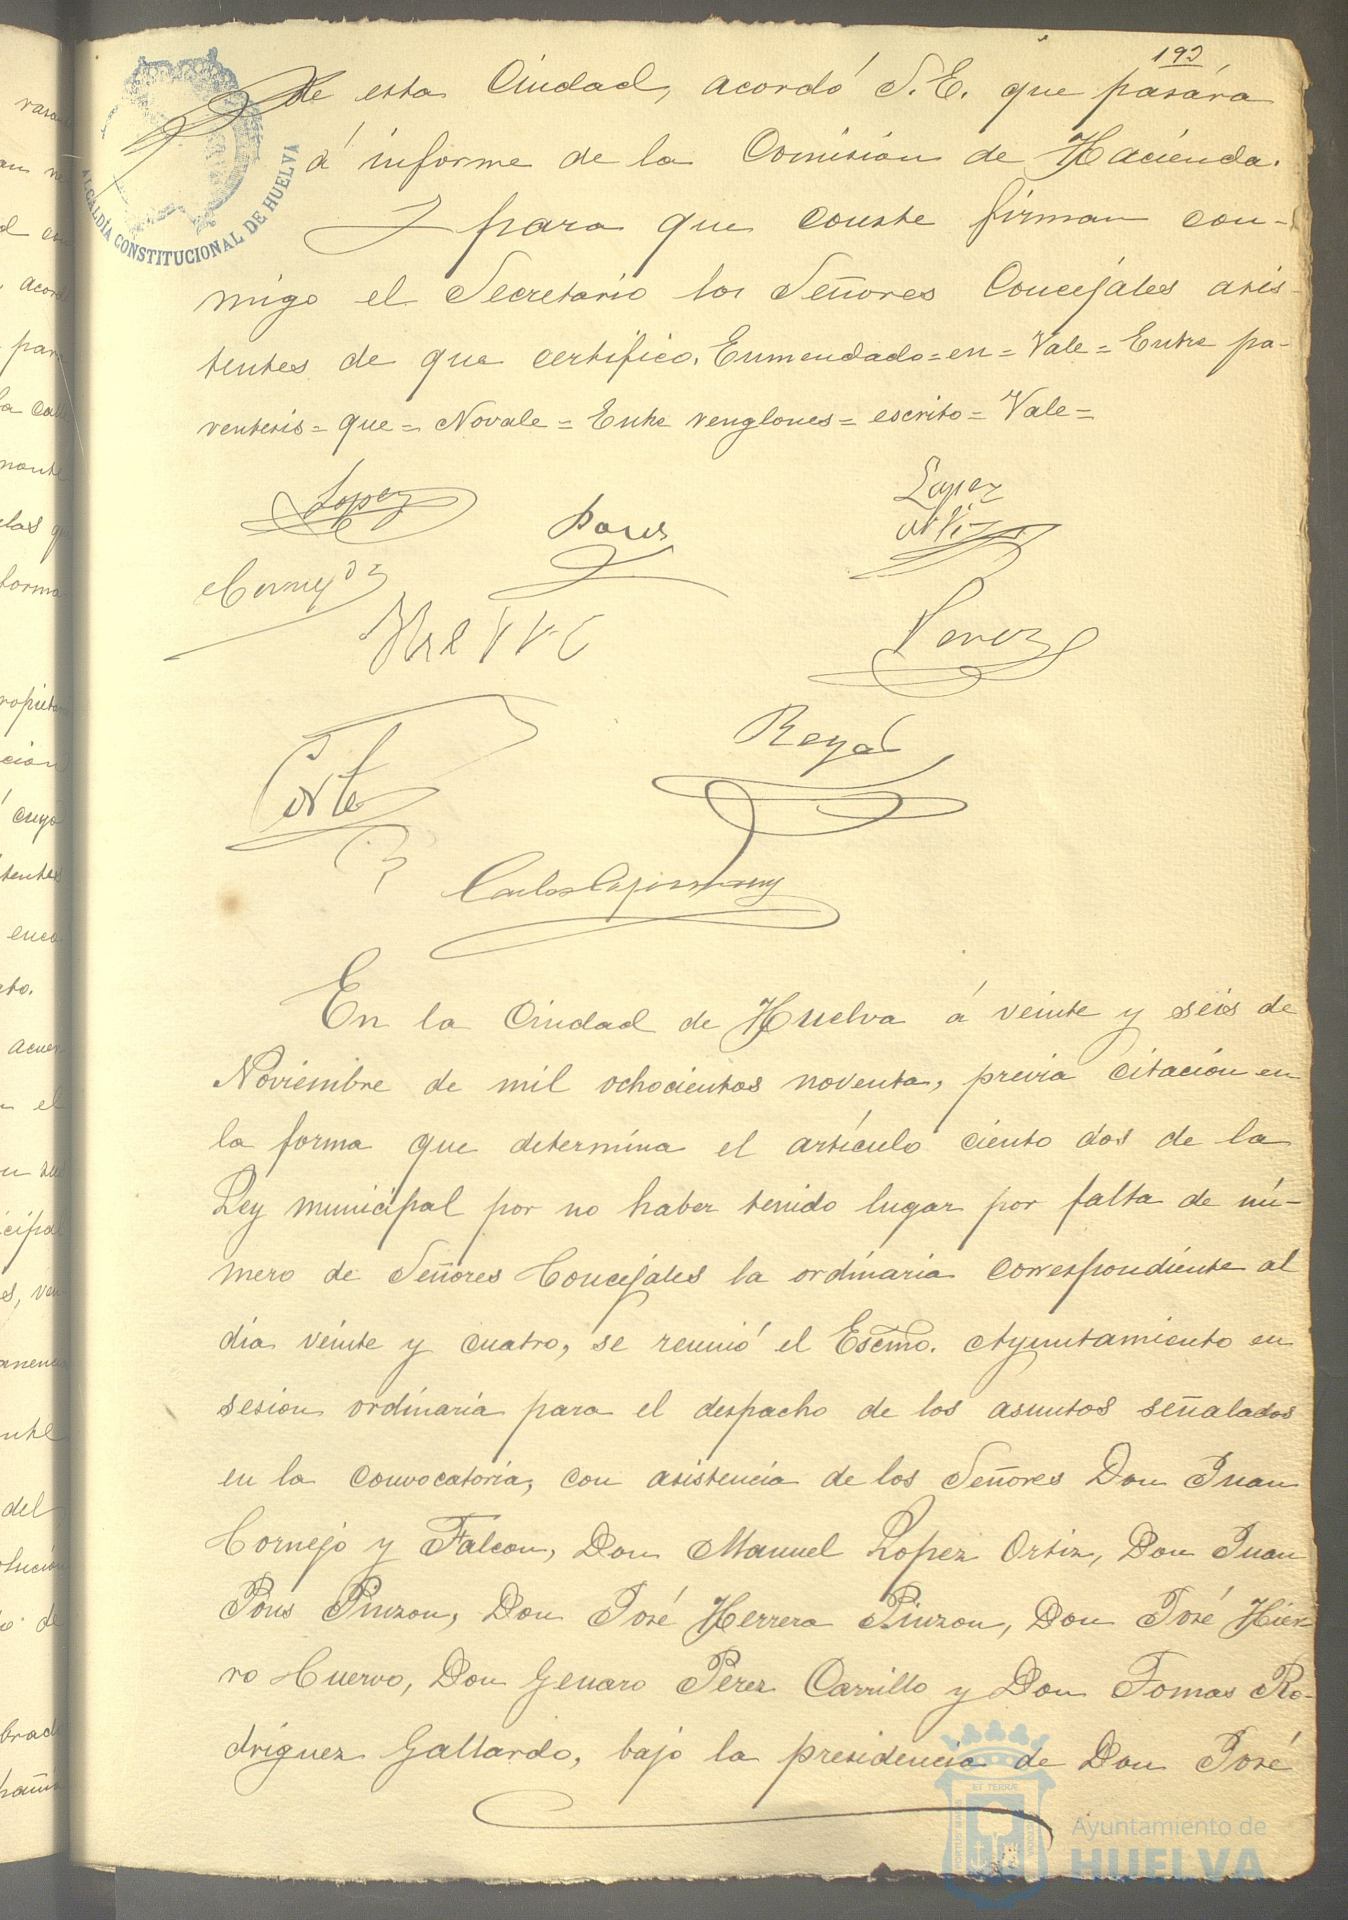 192
de esta Ciudad, acordó S.E. que pasára
á informe de la Comision de Hacienda.
Y para que conste firman con-
migo el Secretario los Señores Concejales asis-
tentes de que certifico. Enmendado=en=Vale=Entre pa-
rentesis=que=No vale=Entre renglones=escrito=Vale=
Lopez
Pons
Lopez
Ortiz
Cornejo
Perez
Corte
Reyes
Carlos
En la Ciudad de Huelva á veinte y seis de
Noviembre de mil ochocientos noventa, previa citación en
la forma que determina el artículo ciento dos de la
Ley municipal por no haber tenido lugar por falta de nú-
mero de Señores Concejales la ordinaria correspondiente al
dia veinte y cuatro, se reunió el Escmo. Ayuntamiento en
sesion ordinaria para el despacho de los asuntos señalados
en la convocatoria, con asistencia de los Señores Don Juan
Cornejo y Falcon, Don Manuel Lopez Ortiz, Don Juan
Pons Pinzon, Don José Herrera Pinzon, Don José Hier-
ro Cuervo, Don Genaro Perez Carrillo y Don Tomas Ro-
driguez Gallardo, bajo la presidencia de Don José
ALCALDÍA CONSTITUCIONAL DE HUELVA
Ayuntamiento de
HUELVA